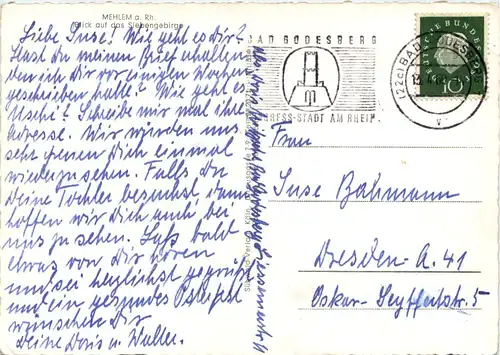 MEHLEM a. Rh.
Blick auf das Siebengebirge
Liebe Suse! Wie geht es dir?
Hast du meinen Brief erhalten
den ich dir vor einigen Wochen
geschrieben hatte? Wie geht es
Uschi? Schreibe mir mal ihre
Adresse. Wir würden uns
sehr freuen dich einmal
wiederzusehen. Falls Du
Deine Tochter besuchst, dann
hoffen wir Dich auch bei
uns zu sehen. Laß bald
etwas von Dir hören
und sei herzlichst gegrüßt
und ein gesundes Osterfest
wünschen Dir
Deine Doris u. Walter.
BAD GODESBERG
KONGRESS-STADT AM RHEIN
(22c) BAD GODESBERG
DEUTSCHE BUNDESPOST
10
Frau
Suse Bahmann
Dresden-A. 41
Oskar-Seyffertstr. 5